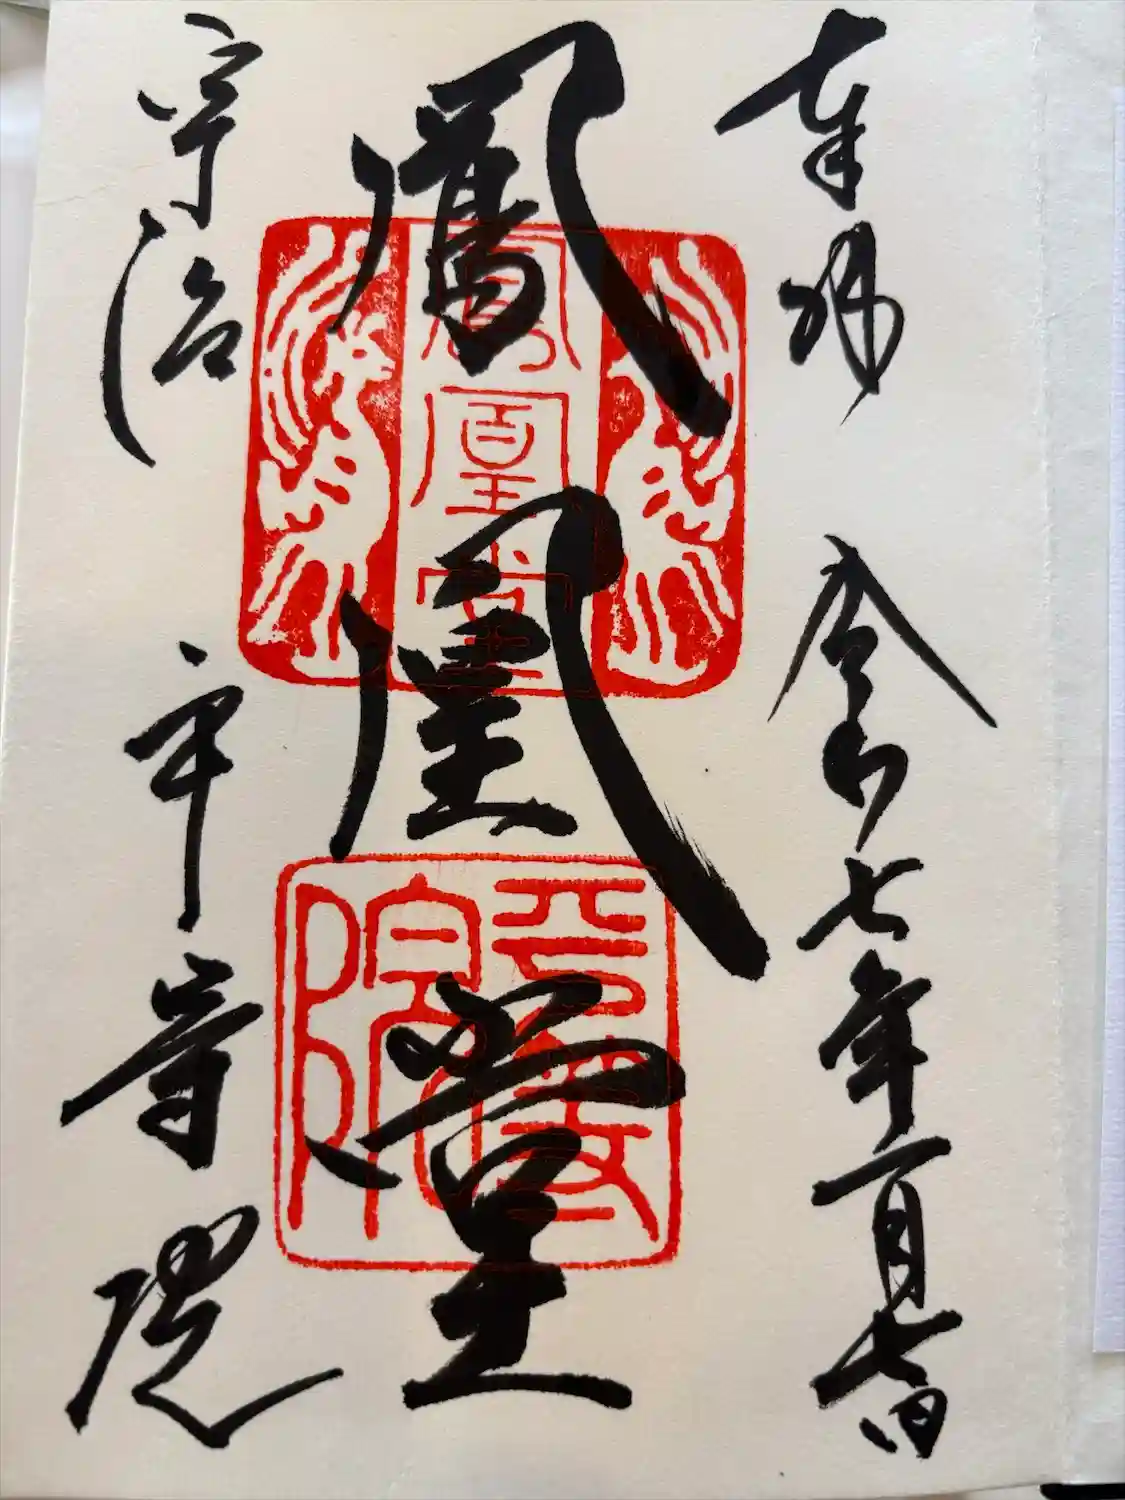 奉拝 令和七年一月七日
鳳凰堂
宇治 平等院
鳳凰堂
平等院